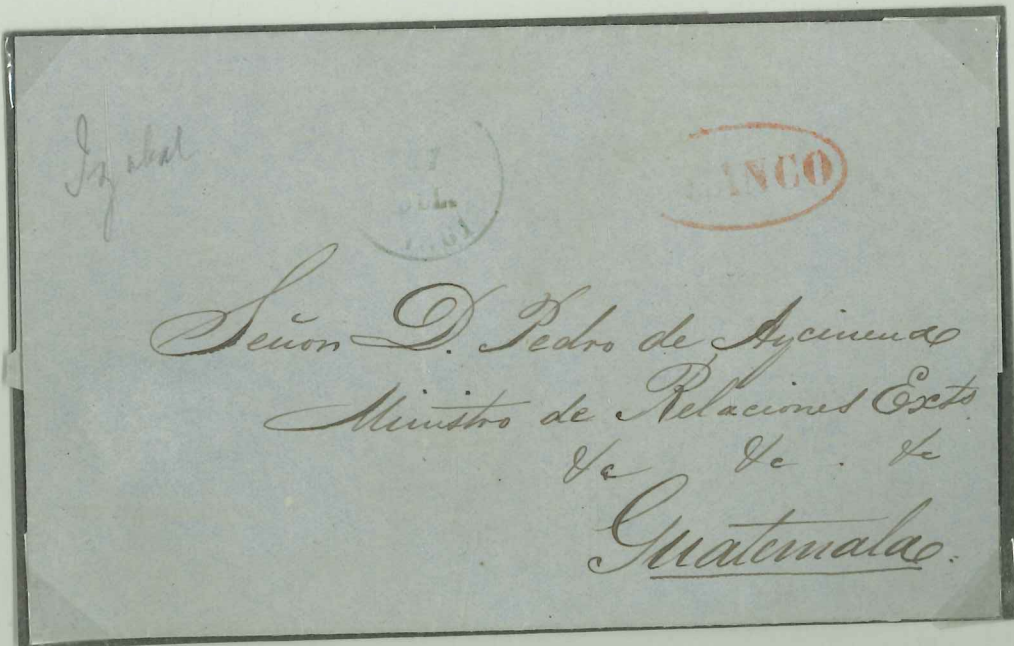 Izabal
17
JUL.
1861
ANCO
Señor D. Pedro de Aycinena
Ministro de Relaciones Exts
&c &c . &c
Guatemala.